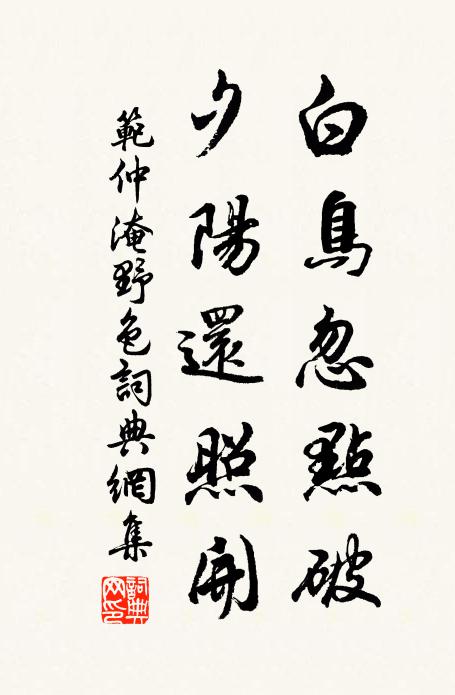 白鳥忽點破
夕陽還照開
範仲淹野色詞典網集
詞典
網印